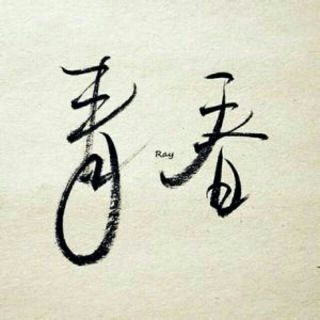 青春
Ray